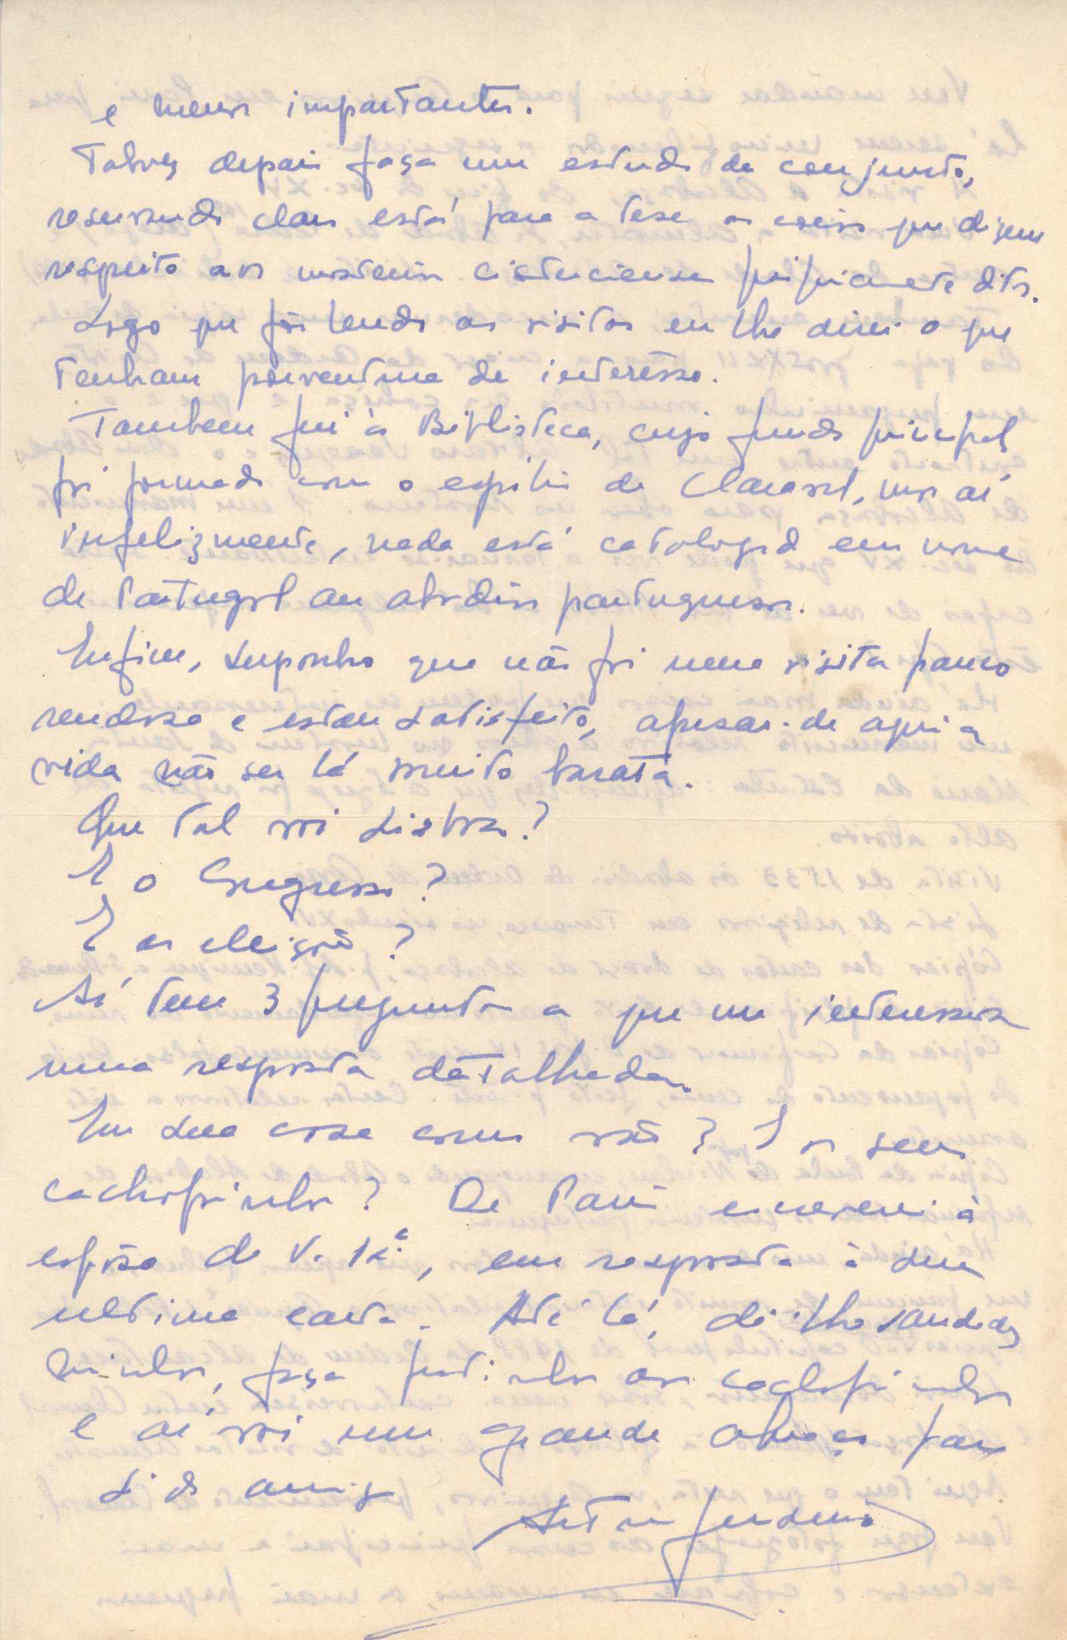 e menos importantes.
Talvez depois faça um estudo de conjunto,
reservando claro está para a tese as coisas que dizem
respeito aos mosteiros cistercienses propriamente ditos.
Logo que fôr lendo as visitas eu lhe direi o que
tenham porventura de interêsse.
Tambem fui à Biblioteca, cujo fundo principal
foi formado com o espólio de Claraval, mas aí
infelizmente, nada está catalogado em nome
de Portugal ou abadias portuguesas.
Enfim, suponho que não foi uma visita pouco
rendosa e estou satisfeito, apesar de aqui a
vida não ser lá muito barata.
Que tal vai Lisboa?
E o Congresso?
E as eleições?
Aí tem 3 perguntas a que me interessava
uma resposta detalhada.
Em sua casa como vão? E os seus
cachopinhos? De Paris escreverei à
espôsa de V. Ex.ª, em resposta à sua
ultima carta. Até lá, dê-lhe saudades
minhas, faça festinhas aos cachopinhos
e aí vai um grande abraço para
Si do amigo
Artur